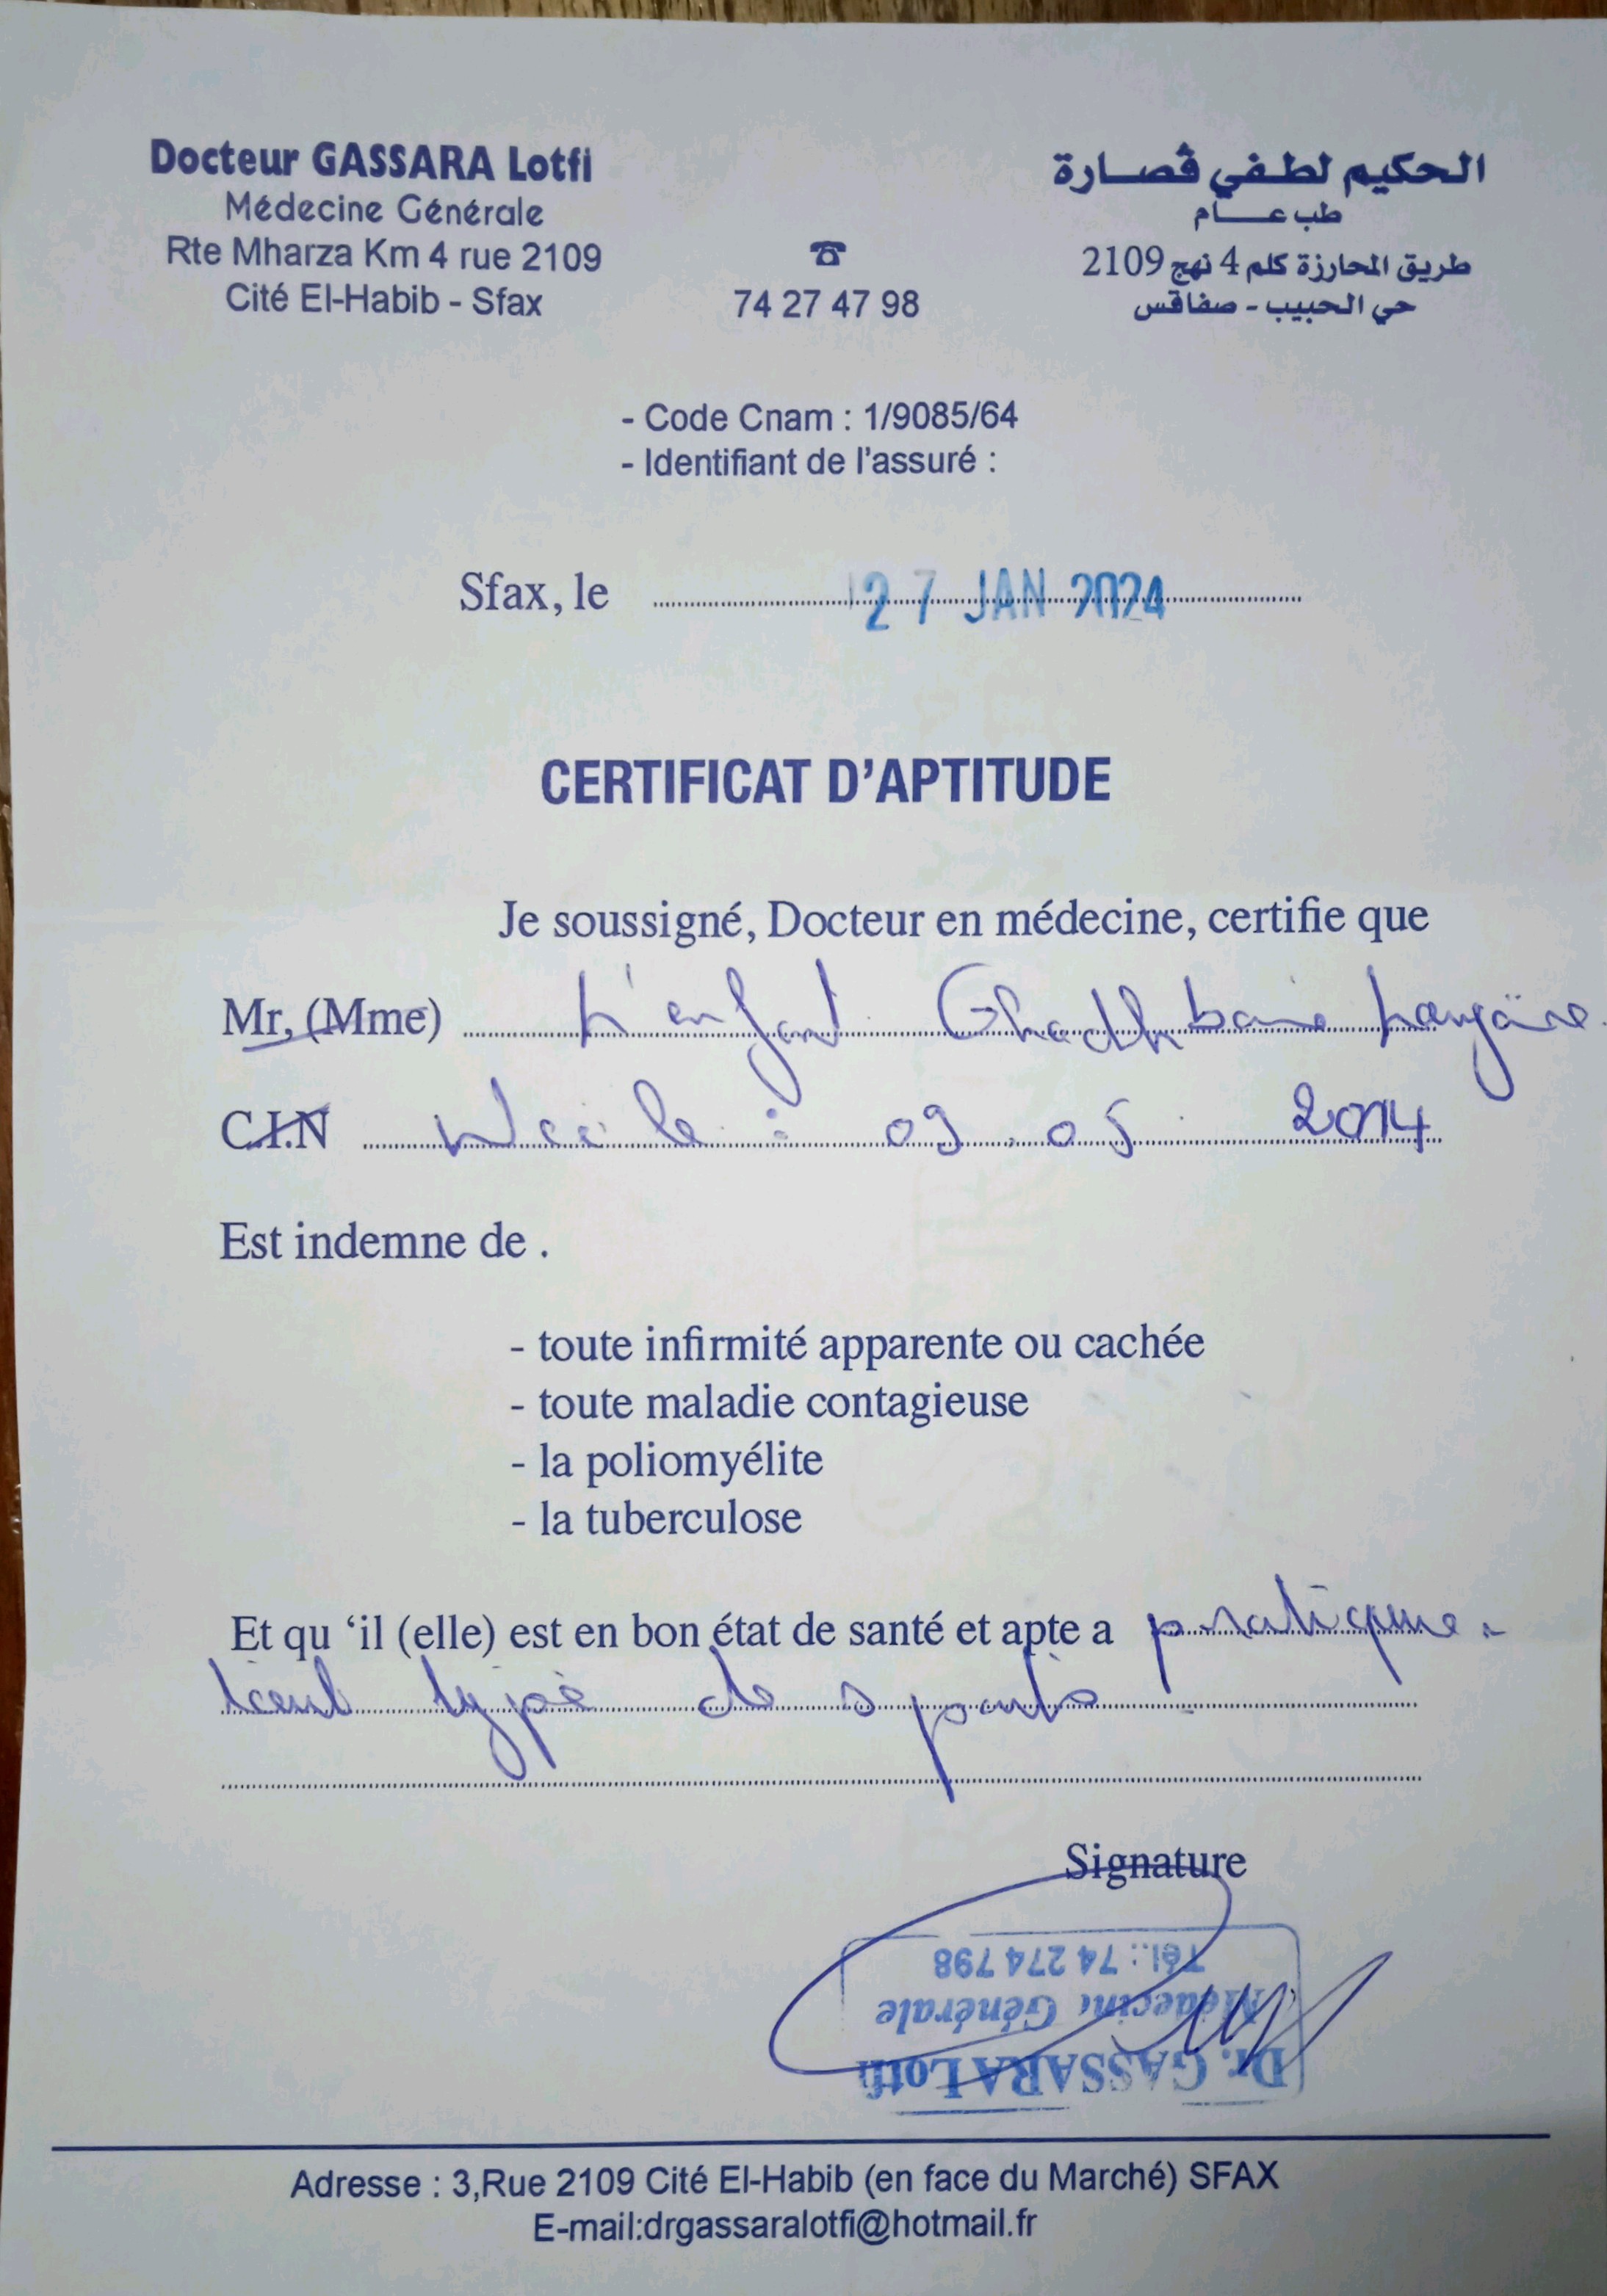 Docteur GASSARA Lotfi
Médecine Générale
Rte Mharza Km 4 rue 2109
Cité El-Habib - Sfax
☎
74 27 47 98
الحكيم لطفي ڨصارة
طب عام
طريق المحارزة كلم 4 نهج 2109
حي الحبيب - صفاقس
- Code Cnam : 1/9085/64
- Identifiant de l'assuré :
Sfax, le 27 JAN 2024
CERTIFICAT D'APTITUDE
Je soussigné, Docteur en médecine, certifie que
Mr, (Mme) L'enfant Ghadhbane
C.I.N Née le : 09 . 05 . 2014
Est indemne de .
- toute infirmité apparente ou cachée
- toute maladie contagieuse
- la poliomyélite
- la tuberculose
Et qu 'il (elle) est en bon état de santé et apte a pratiquer
tout type de sports
Signature
Dr. GASSARA Lotfi
Médecine Générale
Tél.: 74 274 798
Adresse : 3,Rue 2109 Cité El-Habib (en face du Marché) SFAX
E-mail:drgassaralotfi@hotmail.fr